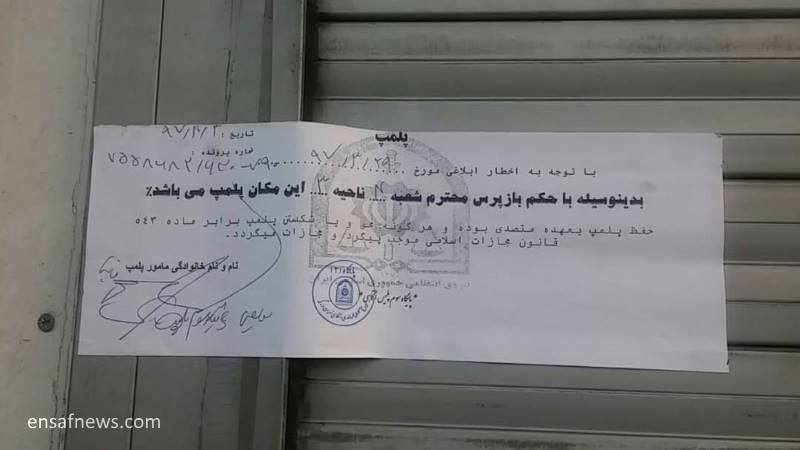 پلمپ
تاریخ : ۹۷/۴/۲
شماره پرونده :
با توجه به اخطار ابلاغی مورخ ۹۷/۳/۲۹
بدینوسیله با حکم بازپرس محترم شعبه ۴ ناحیه ۳ این مکان پلمپ می باشد٪
حفظ پلمپ بعهده متصدی بوده و هر گونه محو و یا شکستن پلمپ برابر ماده ۵۴۳
قانون مجازات اسلامی موجب پیگرد و مجازات میگردد.
نام و نام خانوادگی مامور پلمپ
نیروی انتظامی جمهوری اسلامی ایران
ensafnews.com